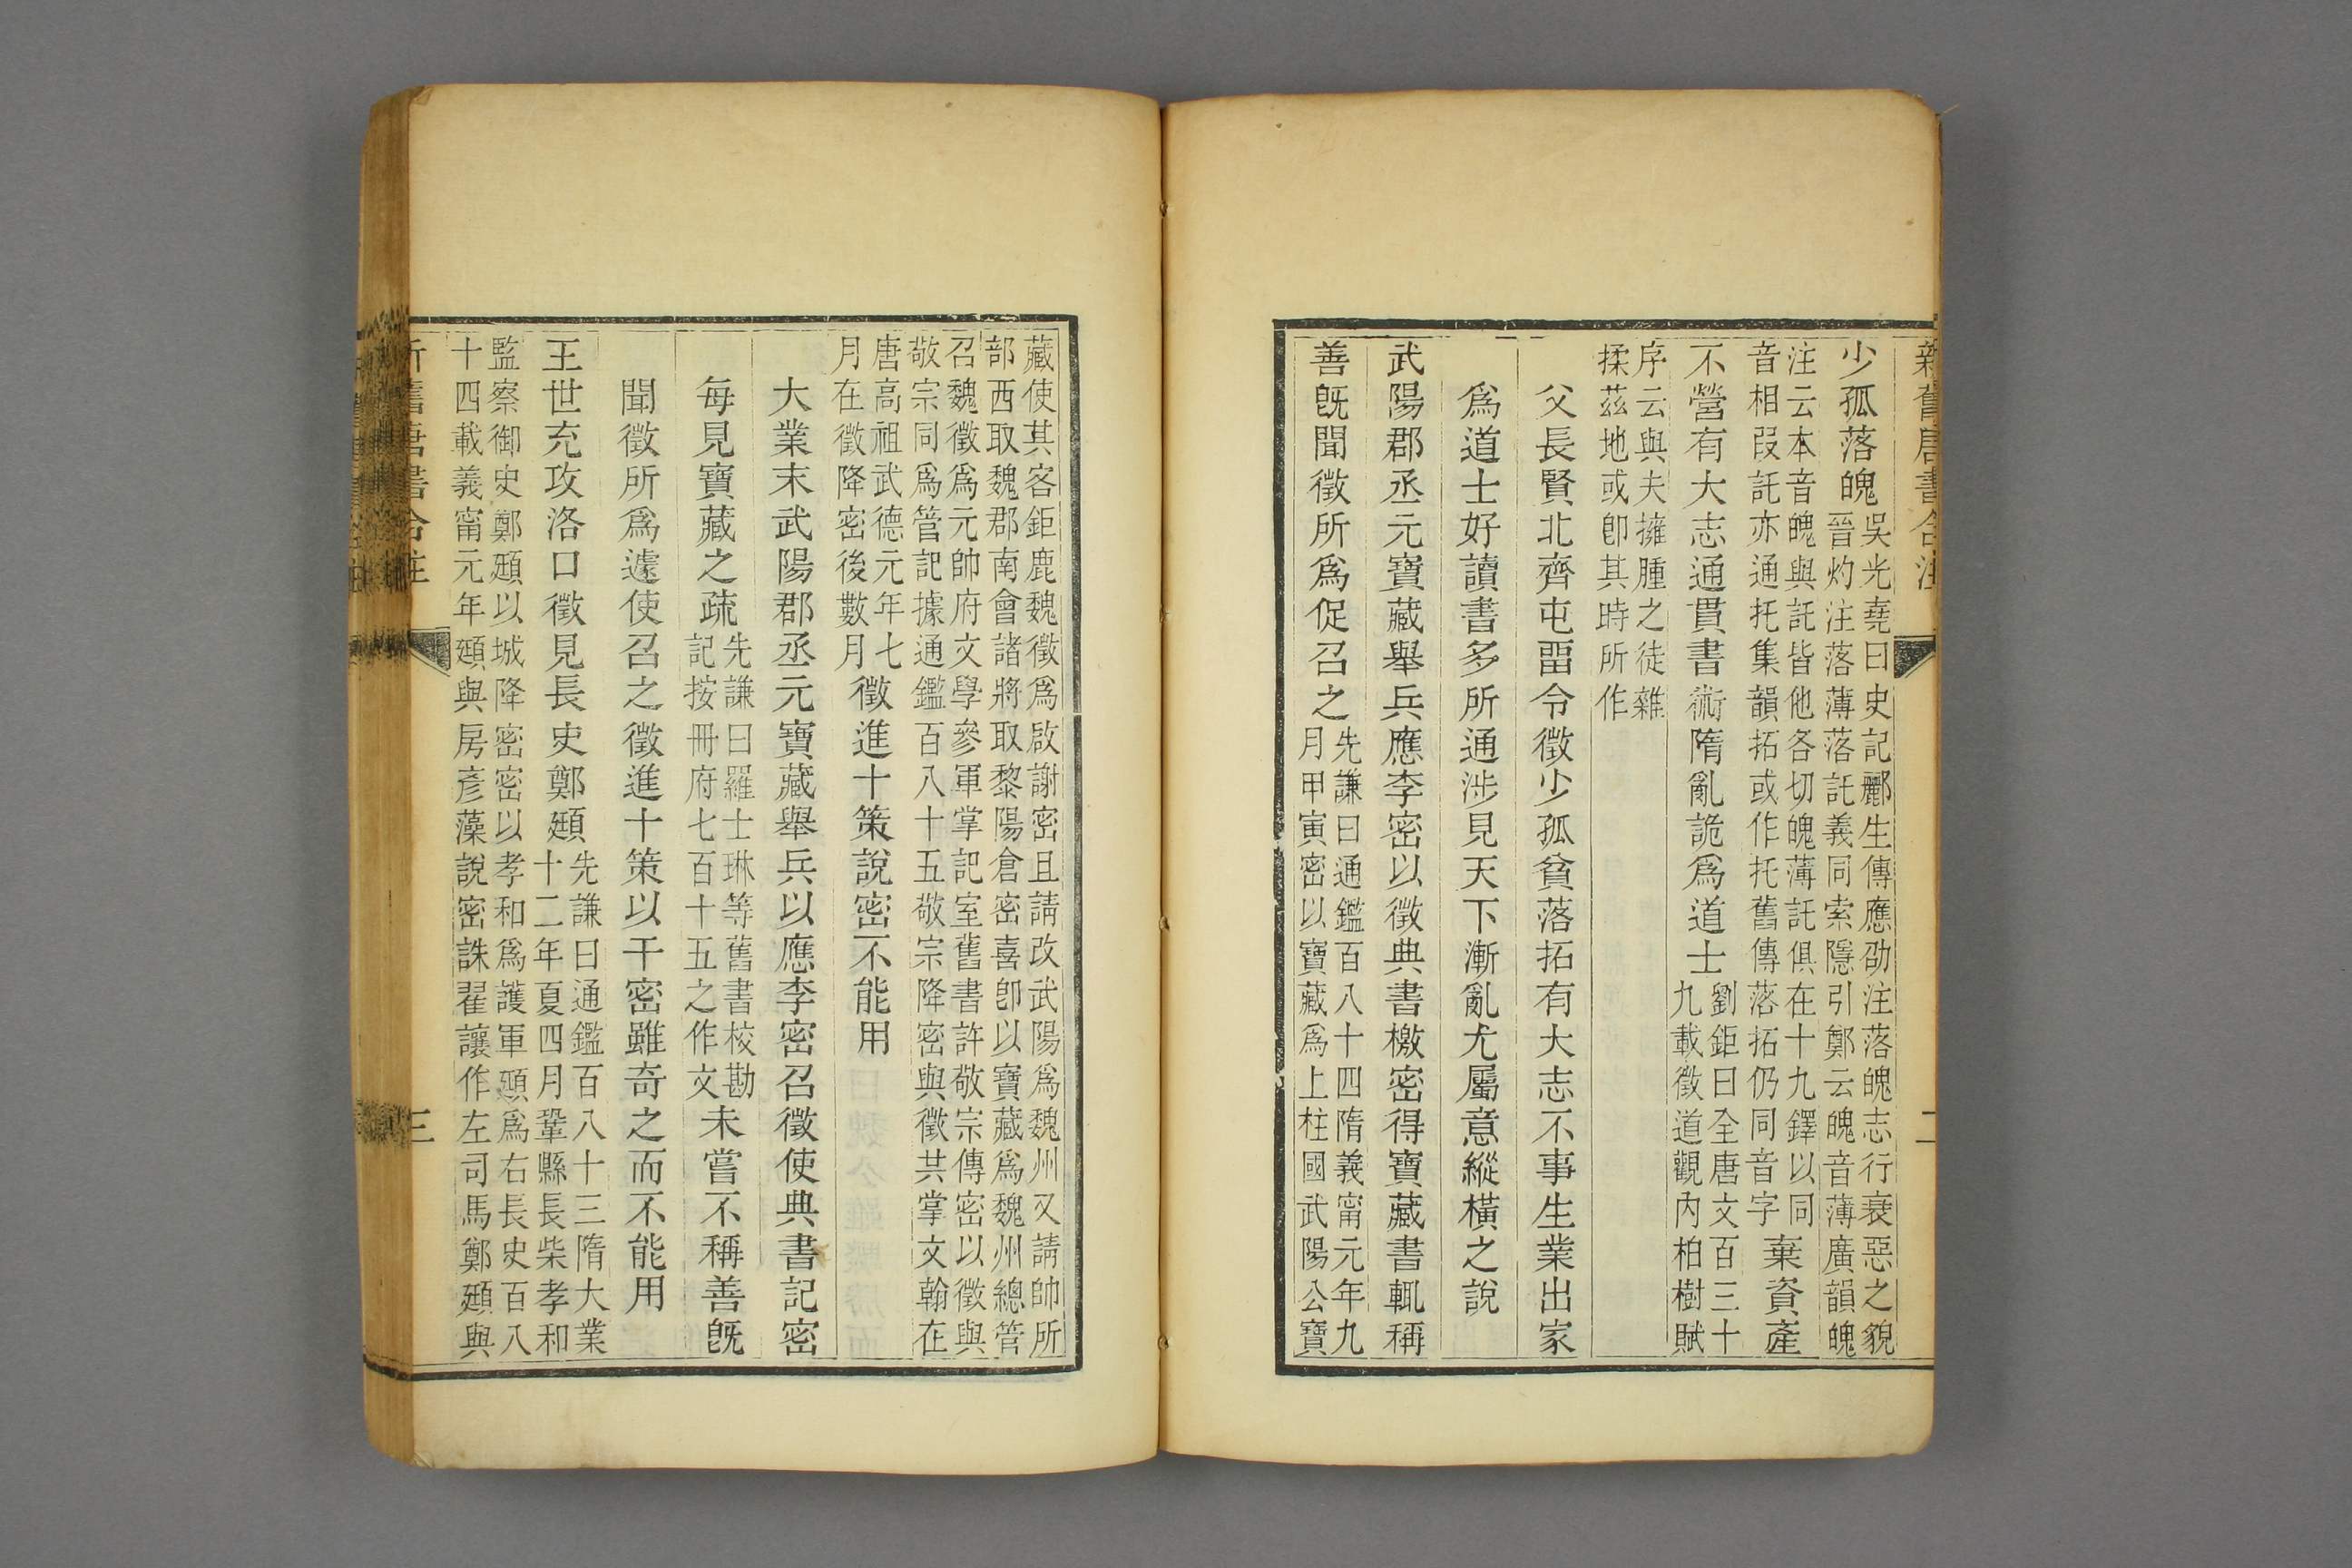 新舊唐書合注
二
少孤落魄吳光堯曰史記酈生傳應劭注落魄志行衰惡之貌
晉灼注落薄落託義同索隱引鄭云魄音薄廣韻魄
注云本音魄與託皆他各切魄薄託俱在十九鐸以同
音相叚託亦通托集韻拓或作托舊傳落拓仍同音字棄資產
不營有大志通貫書術隋亂詭爲道士劉鉅曰全唐文百三十
九載徵道觀內柏樹賦
序云與夫擁腫之徒雜
揉茲地或卽其時所作
父長賢北齊屯畱令徵少孤貧落拓有大志不事生業出家
爲道士好讀書多所通涉見天下漸亂尤屬意縱橫之說
武陽郡丞元寶藏舉兵應李密以徵典書檄密得寶藏書輒稱
善旣聞徵所爲促召之先謙曰通鑑百八十四隋義甯元年九
月甲寅密以寶藏爲上柱國武陽公寶
藏使其客鉅鹿魏徵爲啟謝密且請改武陽爲魏州又請帥所
部西取魏郡南會諸將取黎陽倉密喜卽以寶藏爲魏州總管
召魏徵爲元帥府文學參軍掌記室舊書許敬宗傳密以徵與
敬宗同爲管記據通鑑百八十五敬宗降密與徵共掌文翰在
唐高祖武德元年七
月在徵降密後數月徵進十策說密不能用
大業末武陽郡丞元寶藏舉兵以應李密召徵使典書記密
每見寶藏之疏先謙曰羅士琳等舊書校勘
記按冊府七百十五之作文未嘗不稱善旣
聞徵所爲遽使召之徵進十策以干密雖奇之而不能用
王世充攻洛口徵見長史鄭頲先謙曰通鑑百八十三隋大業
十二年夏四月鞏縣長柴孝和
監察御史鄭頲以城降密密以孝和爲護軍頲爲右長史百八
十四載義甯元年頲與房彥藻說密誅翟讓作左司馬鄭頲與
新舊唐書合注
三